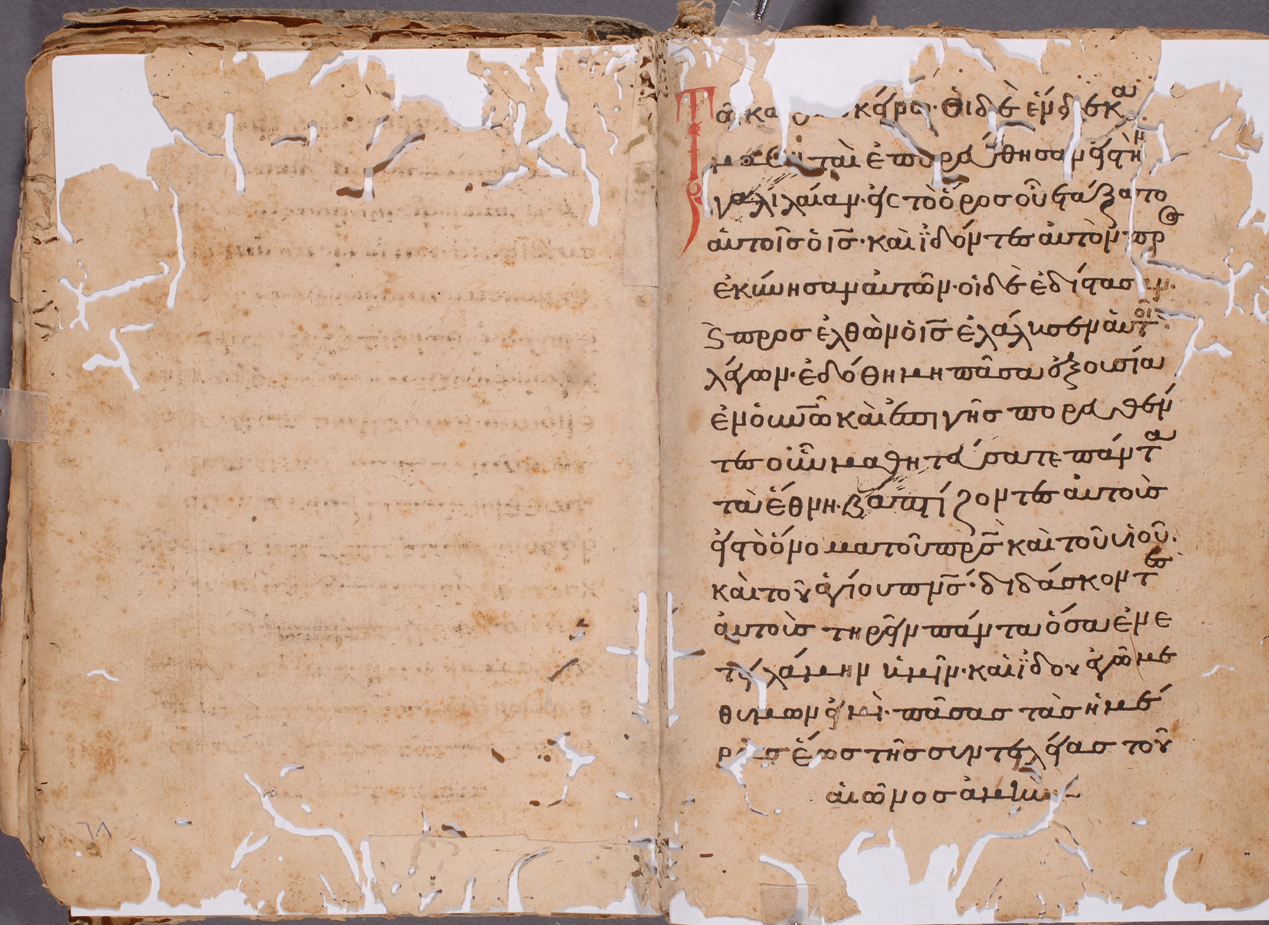 Τῶ καιρῷ οἱ δὲ ἕνδεκα
μαθηταὶ ἐπορεύθησαν εἰς τὴν
γαλιλαίαν· εἰς τὸ ὄρος οὗ ἐτάξατο
αὐτοῖς ὁ ις̄· καὶ ἰδόντες αὐτὸν προσ
εκύνησαν αὐτῶ· οἱ δὲ ἐδίστασαν·
ϛ προσελθὼν ὁ ις̄ ἐλάλησεν αὐτοῖς
λέγων· ἐδόθη μη πᾶσα ἐξουσία
ἐν οὐνῶ καὶ ἐπι γῆς πορευθέν
τες οὖν μαθητεύσατε πάντα
τὰ ἔθνη· βαπτίζοντες αὐτοὺς
εἰς τὸ ὄνομα τοῦ πρς̄ καὶ τοῦ υἱοῦ·
καὶ τοῦ ἁγίου πνς̄· διδάσκοντες
αὐτοὺς τηρεῖν πάντα ὅσα ἐνε
τειλάμην ὑμῖν· καὶ ἰδου ἐγῶ με
θ υμων εἰμὶ· πᾶσας τὰς ἡμέ
ρας ἕως τῆς συντελείας τοῦ
αἰῶνος ἀμὴν